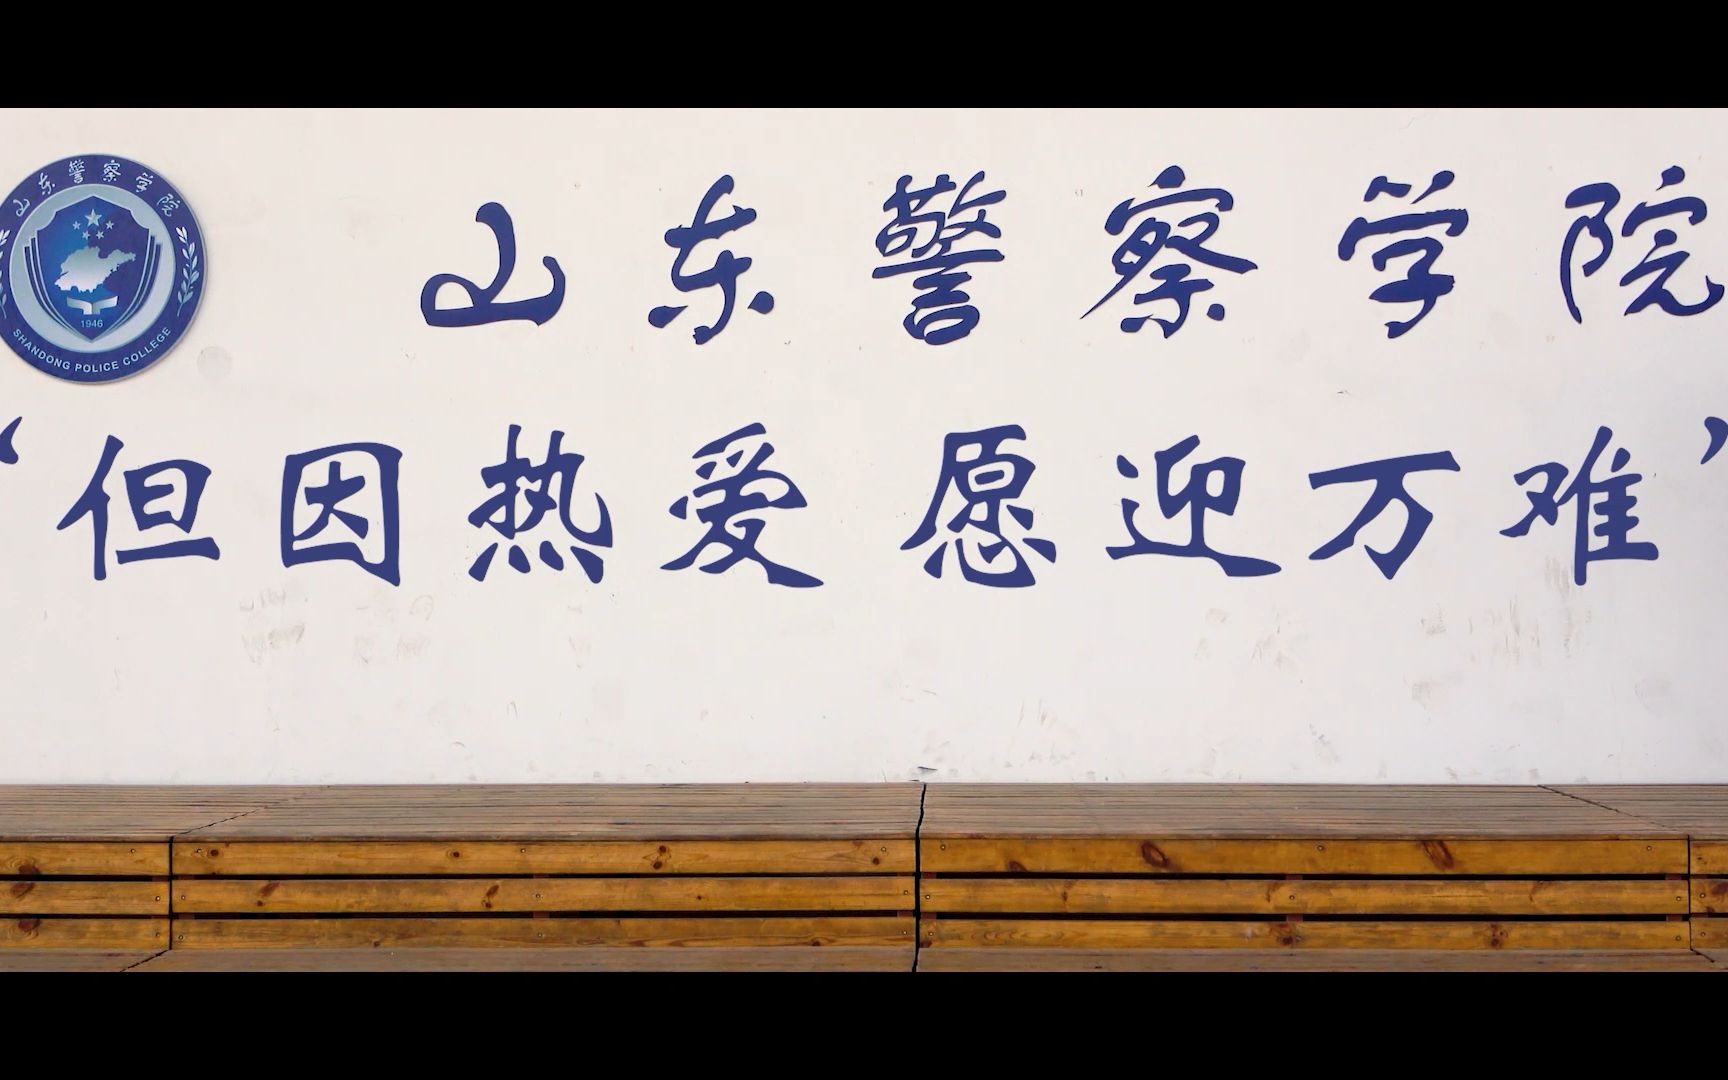 山东警察学院
1946
SHANDONG POLICE COLLEGE
山东警察学院
“但因热爱 愿迎万难”